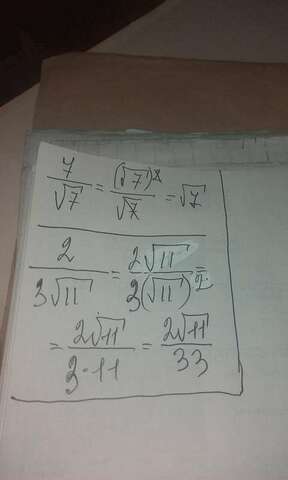 7/√7 = (√7)²/√7 = √7
2/3√11 = 2√11/3(√11)² =
= 2√11/3·11 = 2√11/33